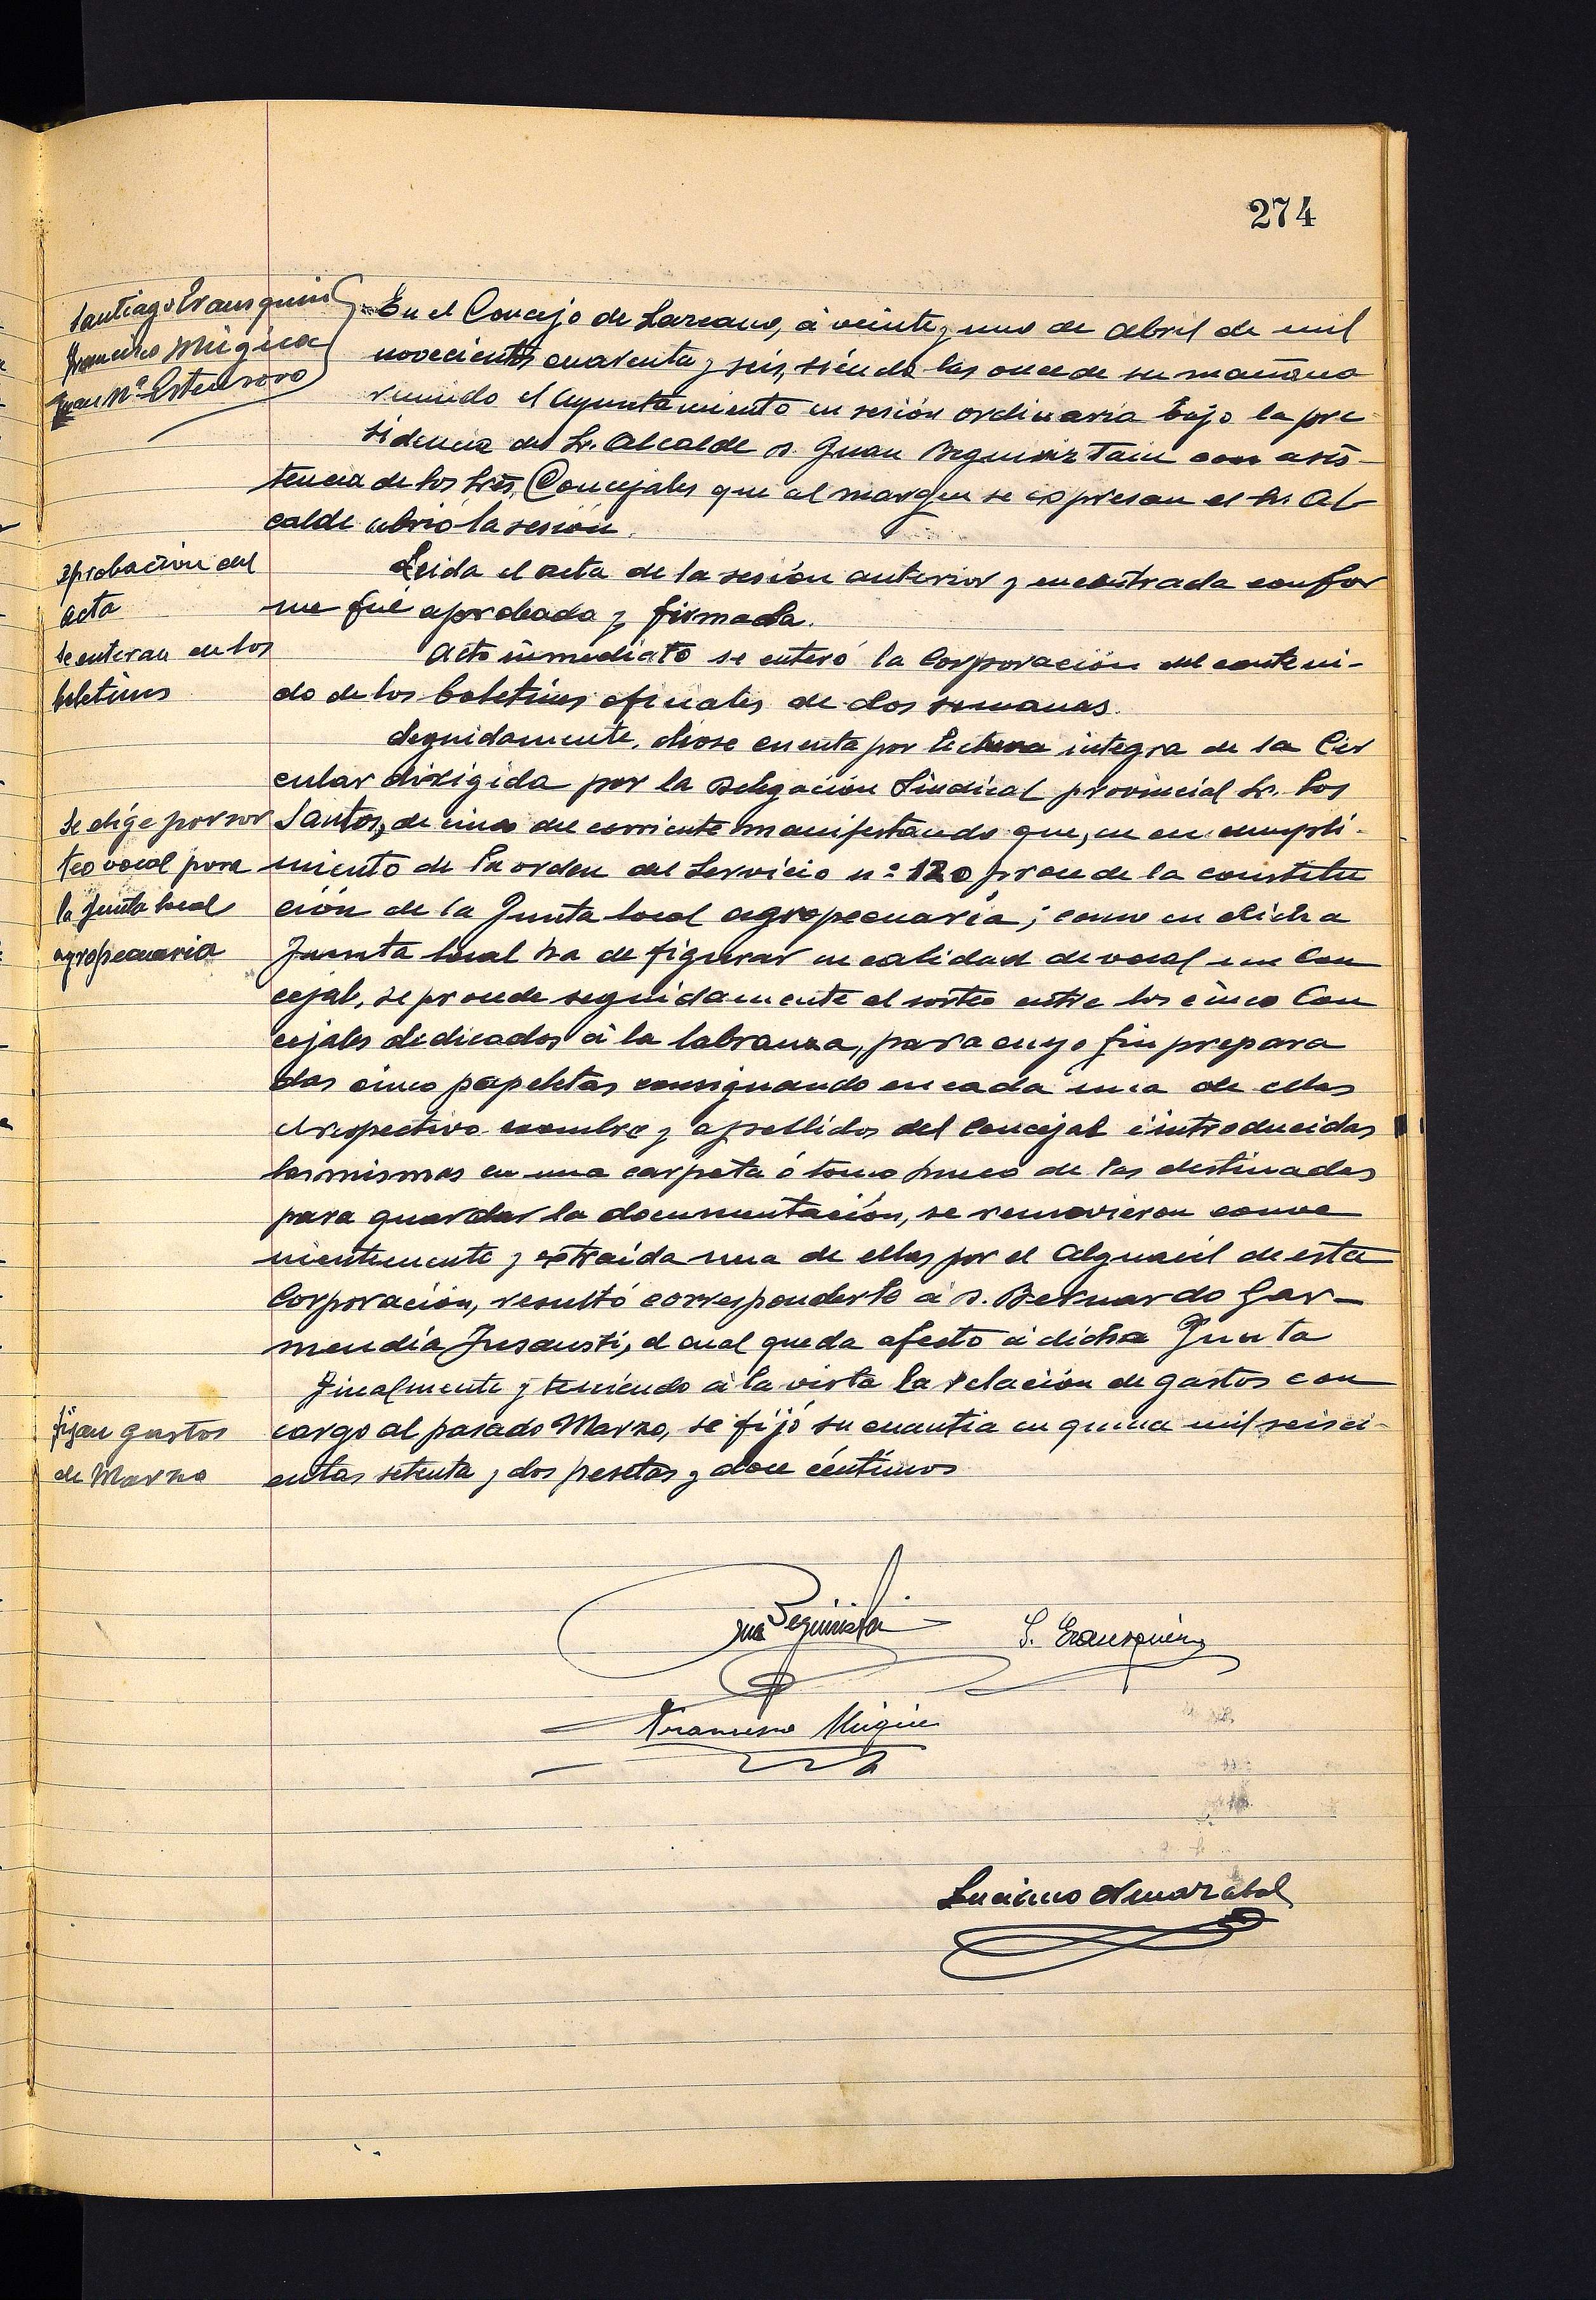 274
Santiago Irausquin
Francisco Múgica
Juan Mª Estensoro
En el Concejo de Lazcano, á veinte y uno de abril de mil
novecientos cuarenta y seis, siéndo las once de su mañana
reunido el Ayuntamiento en sesión ordinaria bajo la pre
sidencia del Sr. Alcalde D. Juan Beguiristain con asis-
tencia de los Sres. Concejales que al margen se expresan el Sr. Al
calde abrió la sesión.
aprobación del
acta
Leida el acta de la sesión anterior y encontrada confor
me fué aprobada y firmada.
Se enteran de los
boletines
Acto inmediato se enteró la Corporación del conteni-
do de los boletines oficiales de dos semanas.
Seguidamente, diose cuenta por lectura integra de la Cir
cular dirigida por la Delegación Sindical provincial Sr. Los
Se elige por sor
teo vocal para
la Junta local
agropecuaria
Santos, de cinco del corriente manifestando que, en cumpli-
miento de la orden del Servicio nº 120 procede la constitu
ción de la Junta local agropecuaria; como en dicha
Junta local ha de figurar en calidad de vocal un Con
cejal, se procede seguidamente al sorteo entre los cinco Con
cejales dedicados á la labranza, para cuyo fin prepara
das cinco papeletas consignando en cada una de ellas
el respectivo nombre y apellidos del Concejal é introducidas
las mismas en una carpeta ó tomo hueco de las destinadas
para guardar la documentación, se removieron conve
nientemente y extraída una de ellas por el Alguacil de esta
Corporación, resultó corresponderle á D. Bernardo Gar-
mendía Jusausti, el cual queda afecto á dicha Junta
Finalmente y teniendo á la vista la relación de gastos con
fijan gastos
de Marzo
cargo al pasado Marzo, se fijó su cuantia en quince mil seisci-
entas setenta y dos pesetas y doce céntimos
Juan Beguiristain
S. Irausquin
Francisco Múgica
Luciano Amazabal